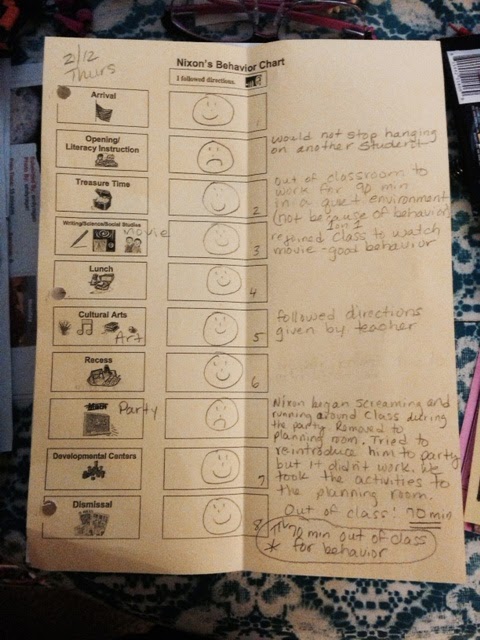 2/12
Thurs
Nixon's Behavior Chart
I followed directions.
Arrival
1
Opening/
Literacy Instruction
would not stop hanging
on another student
Treasure Time
2
out of classroom to
work for 90 min
in a quiet environment
(not because of behavior)
1 on 1
Writing/Science/Social Studies
Movie
3
rejoined class to watch
movie - good behavior
Lunch
4
Cultural Arts
Art
5
followed directions
given by teacher
Recess
6
Math
Party
Nixon began screaming and
running around class during
the party. Removed to
planning room. Tried to
reintroduce him to party
but it didn't work. We
took the activities to
the planning room.
Developmental Centers
7
Out of class: 70 min
Dismissal
8
70 min out of class
* for behavior